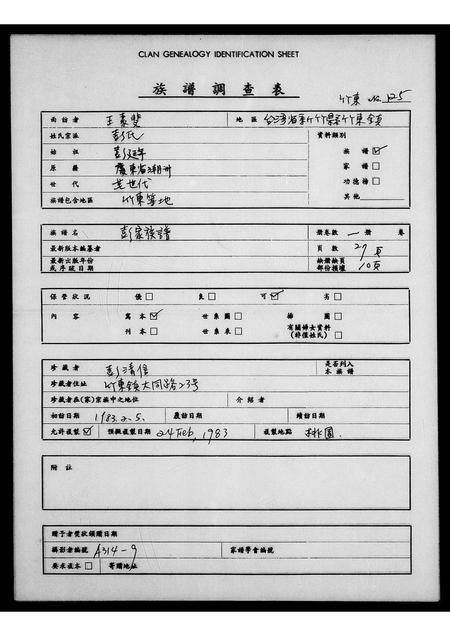 CLAN GENEALOGY IDENTIFICATION SHEET
族譜調查表
竹東 No. 125
面訪者 王素斐 地區 台灣省新竹縣竹東鎮
姓氏宗派 彭氏 資料類別
始祖 彭延年 族譜 ☑
原籍 廣東省潮州 家譜 □
世代 世代 功德榜 □
族譜包含地區 竹東等地 其他
族譜名 彭家族譜 冊卷數 一 冊 卷
最新版本編纂者 頁數 27頁
最新出版年份或序跋日期 缺冊缺頁部份損壞 10頁
保管狀況 優 □ 良 □ 可 ☑ 劣 □
內容 寫本 ☑ 世系圖 □ 插圖 □
刊本 □ 世系表 □ 有關婦女資料 (非僅姓氏) □
珍藏者 彭清信 是否列入本族譜
珍藏者住址 竹東鎮大同路23號
珍藏者在(家)宗族中之地位 介紹者
初訪日期 1983.2.5. 覆訪日期 續訪日期
允許複製 ☑ 預擬複製日期 24 Feb, 1983 複製地點 桃園.
附註
贈予者獎狀頒贈日期
攝影者編號 A314-9 家譜學會編號
要求複本 □ 寄贈地址